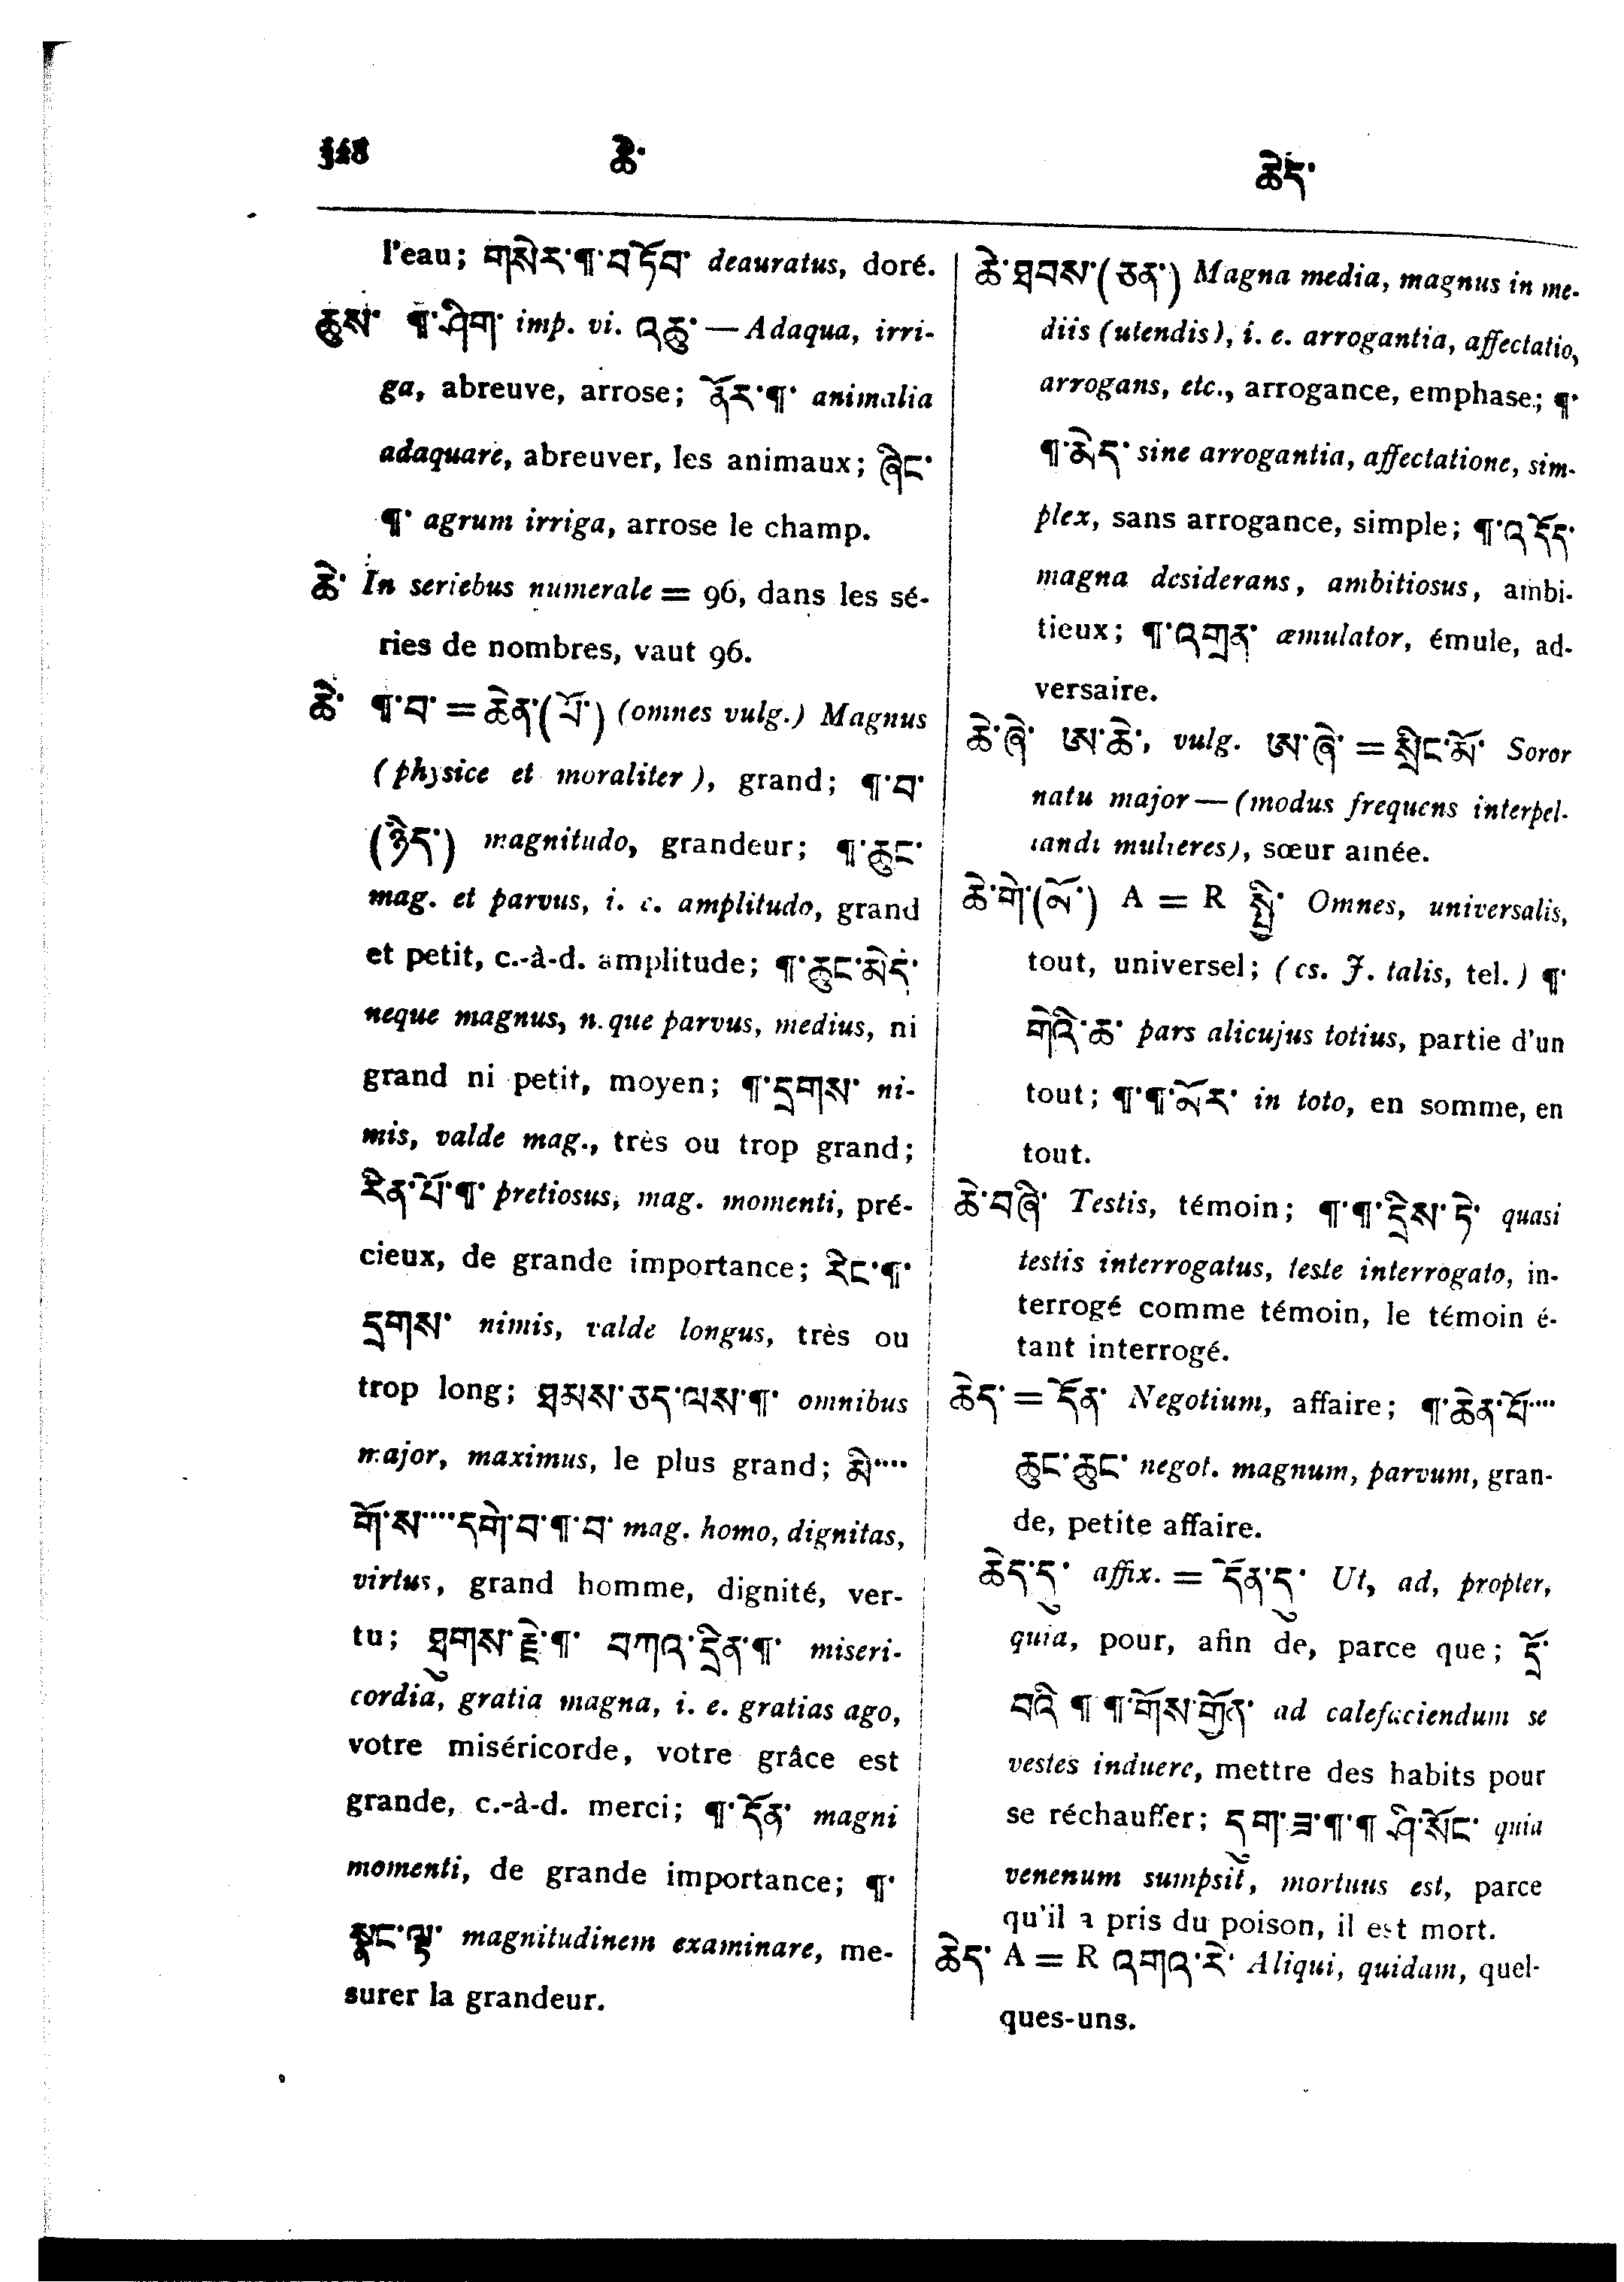 348 ཆེ་ ཆེད་
l'eau; གསེར་¶་བ་ཏོབ་ deauratus, doré.
ཆུས་ ¶་ཤིག་ imp. vi. འཆུ་ — Adaqua, irri-
ga, abreuve, arrose; ནོར་¶་ animalia
adaquare, abreuver, les animaux; ཞིང་
¶་ agrum irriga, arrose le champ.
ཆེ་ In seriebus numerale = 96, dans les sé-
ries de nombres, vaut 96.
ཆེ་ ¶་བ་ = ཆེན་(པོ་) (omnes vulg.) Magnus
(physice et moraliter), grand; ¶་བ་
(ཉིད་) magnitudo, grandeur; ¶་ཆུང་
mag. et parvus, i. e. amplitudo, grand
et petit, c.-à-d. amplitude; ¶་ཆུང་མེད་
neque magnus, neque parvus, medius, ni
grand ni petit, moyen; ¶་དྲགས་ ni-
mis, valde mag., très ou trop grand;
རིན་པོ་¶་ pretiosus, mag. momenti, pré-
cieux, de grande importance; རིང་¶་
དྲགས་ nimis, valde longus, très ou
trop long; ཐམས་ཅད་ལས་¶་ omnibus
major, maximus, le plus grand; མི་....
གོ་ས་....དགེ་བ་¶་བ་ mag. homo, dignitas,
virtus, grand homme, dignité, ver-
tu; ཐུགས་རྗེ་¶་ བཀའ་དྲིན་¶་ miseri-
cordia, gratia magna, i. e. gratias ago,
votre miséricorde, votre grâce est
grande, c.-à-d. merci; ¶་དོན་ magni
momenti, de grande importance; ¶་
སྣང་ལྟ་ magnitudinem examinare, me-
surer la grandeur.
ཆེ་ཐབས་(ཅན་) Magna media, magnus in me-
diis (utendis), i. e. arrogantia, affectatio,
arrogans, etc., arrogance, emphase; ¶་
¶་མེད་ sine arrogantia, affectatione, sim-
plex, sans arrogance, simple; ¶་འདོད་
magna desiderans, ambitiosus, ambi-
tieux; ¶་འགྲན་ æmulator, émule, ad-
versaire.
ཆེ་ཞེ་ ཨ་ཆེ་, vulg. ཨ་ཞེ་ = སྲིང་མོ་ Soror
natu major — (modus frequens interpel-
landi mulieres), sœur aînée.
ཆེ་གེ་(མོ་) A = R སྤྱི་ Omnes, universalis,
tout, universel; (cs. J. talis, tel.) ¶་
གེའི་ཆ་ pars alicujus totius, partie d'un
tout; ¶་¶་མོར་ in toto, en somme, en
tout.
ཆེ་བཞི་ Testis, témoin; ¶་¶་དྲིས་ཏེ་ quasi
testis interrogatus, teste interrogato, in-
terrogé comme témoin, le témoin é-
tant interrogé.
ཆེད་ = དོན་ Negotium, affaire; ¶་ཆེན་པོ་....
ཆུང་ཆུང་ negot. magnum, parvum, gran-
de, petite affaire.
ཆེད་དུ་ affix. = དོན་དུ་ Ut, ad, propter,
quia, pour, afin de, parce que; དྲོ་
བའི ¶ ¶་གོས་གྱོན་ ad calefaciendum se
vestes induere, mettre des habits pour
se réchauffer; དུག་ཟ་¶་¶ ཤི་སོང་ quia
venenum sumpsit, mortuus est, parce
qu'il a pris du poison, il est mort.
ཆེད་ A = R འགའ་རེ་ Aliqui, quidam, quel-
ques-uns.